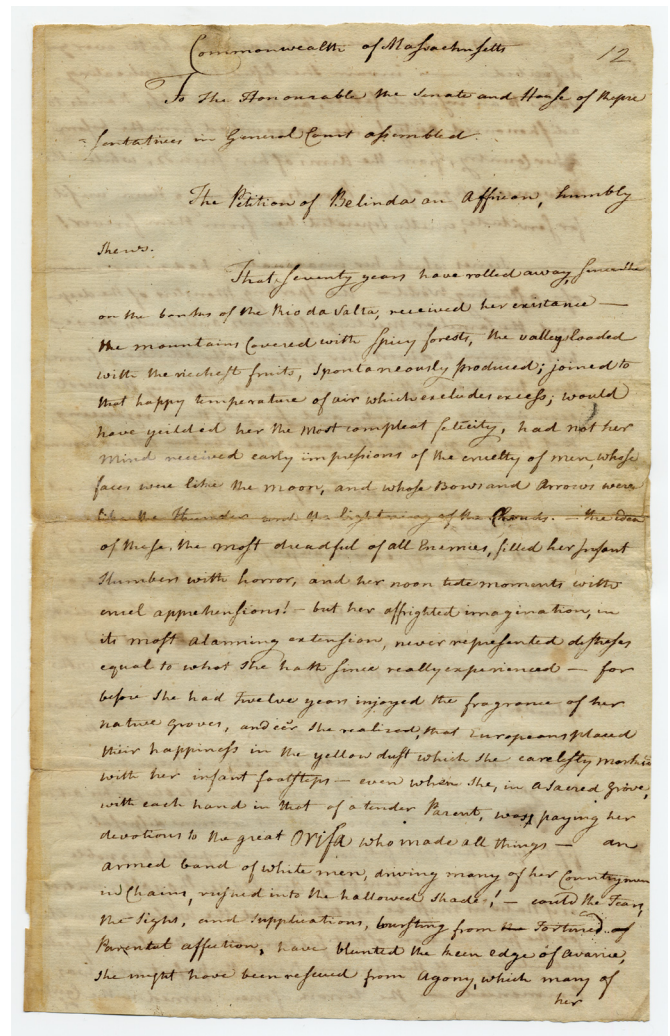 Commonwealth of Massachusetts
12
To the Honourable the Senate and House of Repre
=sentatives in General Court assembled.
The Petition of Belinda an Affrican, humbly
shews.
That seventy years have rolled away, since she
on the banks of the Rio da Valta, received her existance —
the mountains Covered with Spicy forests, the valleys loaded
with the richest fruits, Spontaneously produced; joined to
that happy temperature of air which excludes excess; would
have yeilded her the most compleat felicity, had not her
mind received early impressions of the cruelty of men, whose
faces were like the moon, and whose Bows and Arrows were
like the thunder and the lightning of the Clouds. — the idea
of these, the most dreadful of all Enemies, filled her infant
slumbers with horror, and her noon tide moments with
cruel apprehensions! — but her affrighted imagination, in
its most alarming extension, never represented distresses
equal to what she hath since really experienced — for
before she had Twelve years injoyed the fragrance of her
native groves, and e'er she realized, that Europeans placed
their happiness in the yellow dust which she carelessly marked
with her infant footsteps — even when she, in a sacred grove,
with each hand in that of a tender Parent, was paying her
devotions to the great Orisa who made all things — an
armed band of white men, driving many of her Countrymen
in Chains, rushed into the hallowed shade! — could the Tears,
the sighs, and supplications, bursting from the Tortured
Parental affection, have blunted the keen edge of avarice,
she might have been rescued from Agony, which many of
her